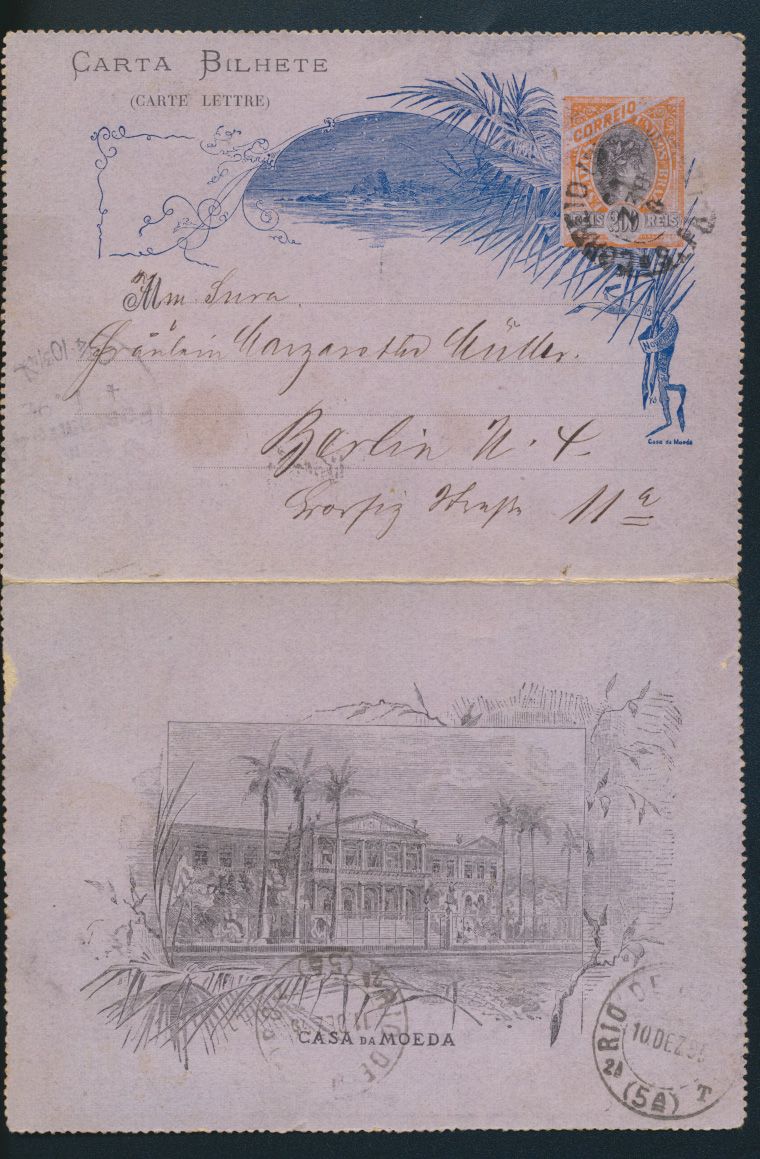 CARTA BILHETE
(CARTE LETTRE)
CORREIO
REIS 200 REIS
Fräulein Margarethe Müller.
Casa da Moeda
Berlin N. 4.
Borsig Straße 11a
CASA DA MOEDA
RIO DE
11 DEZ
(5A)
RIO DE
10 DEZ 9
2A (5A) T